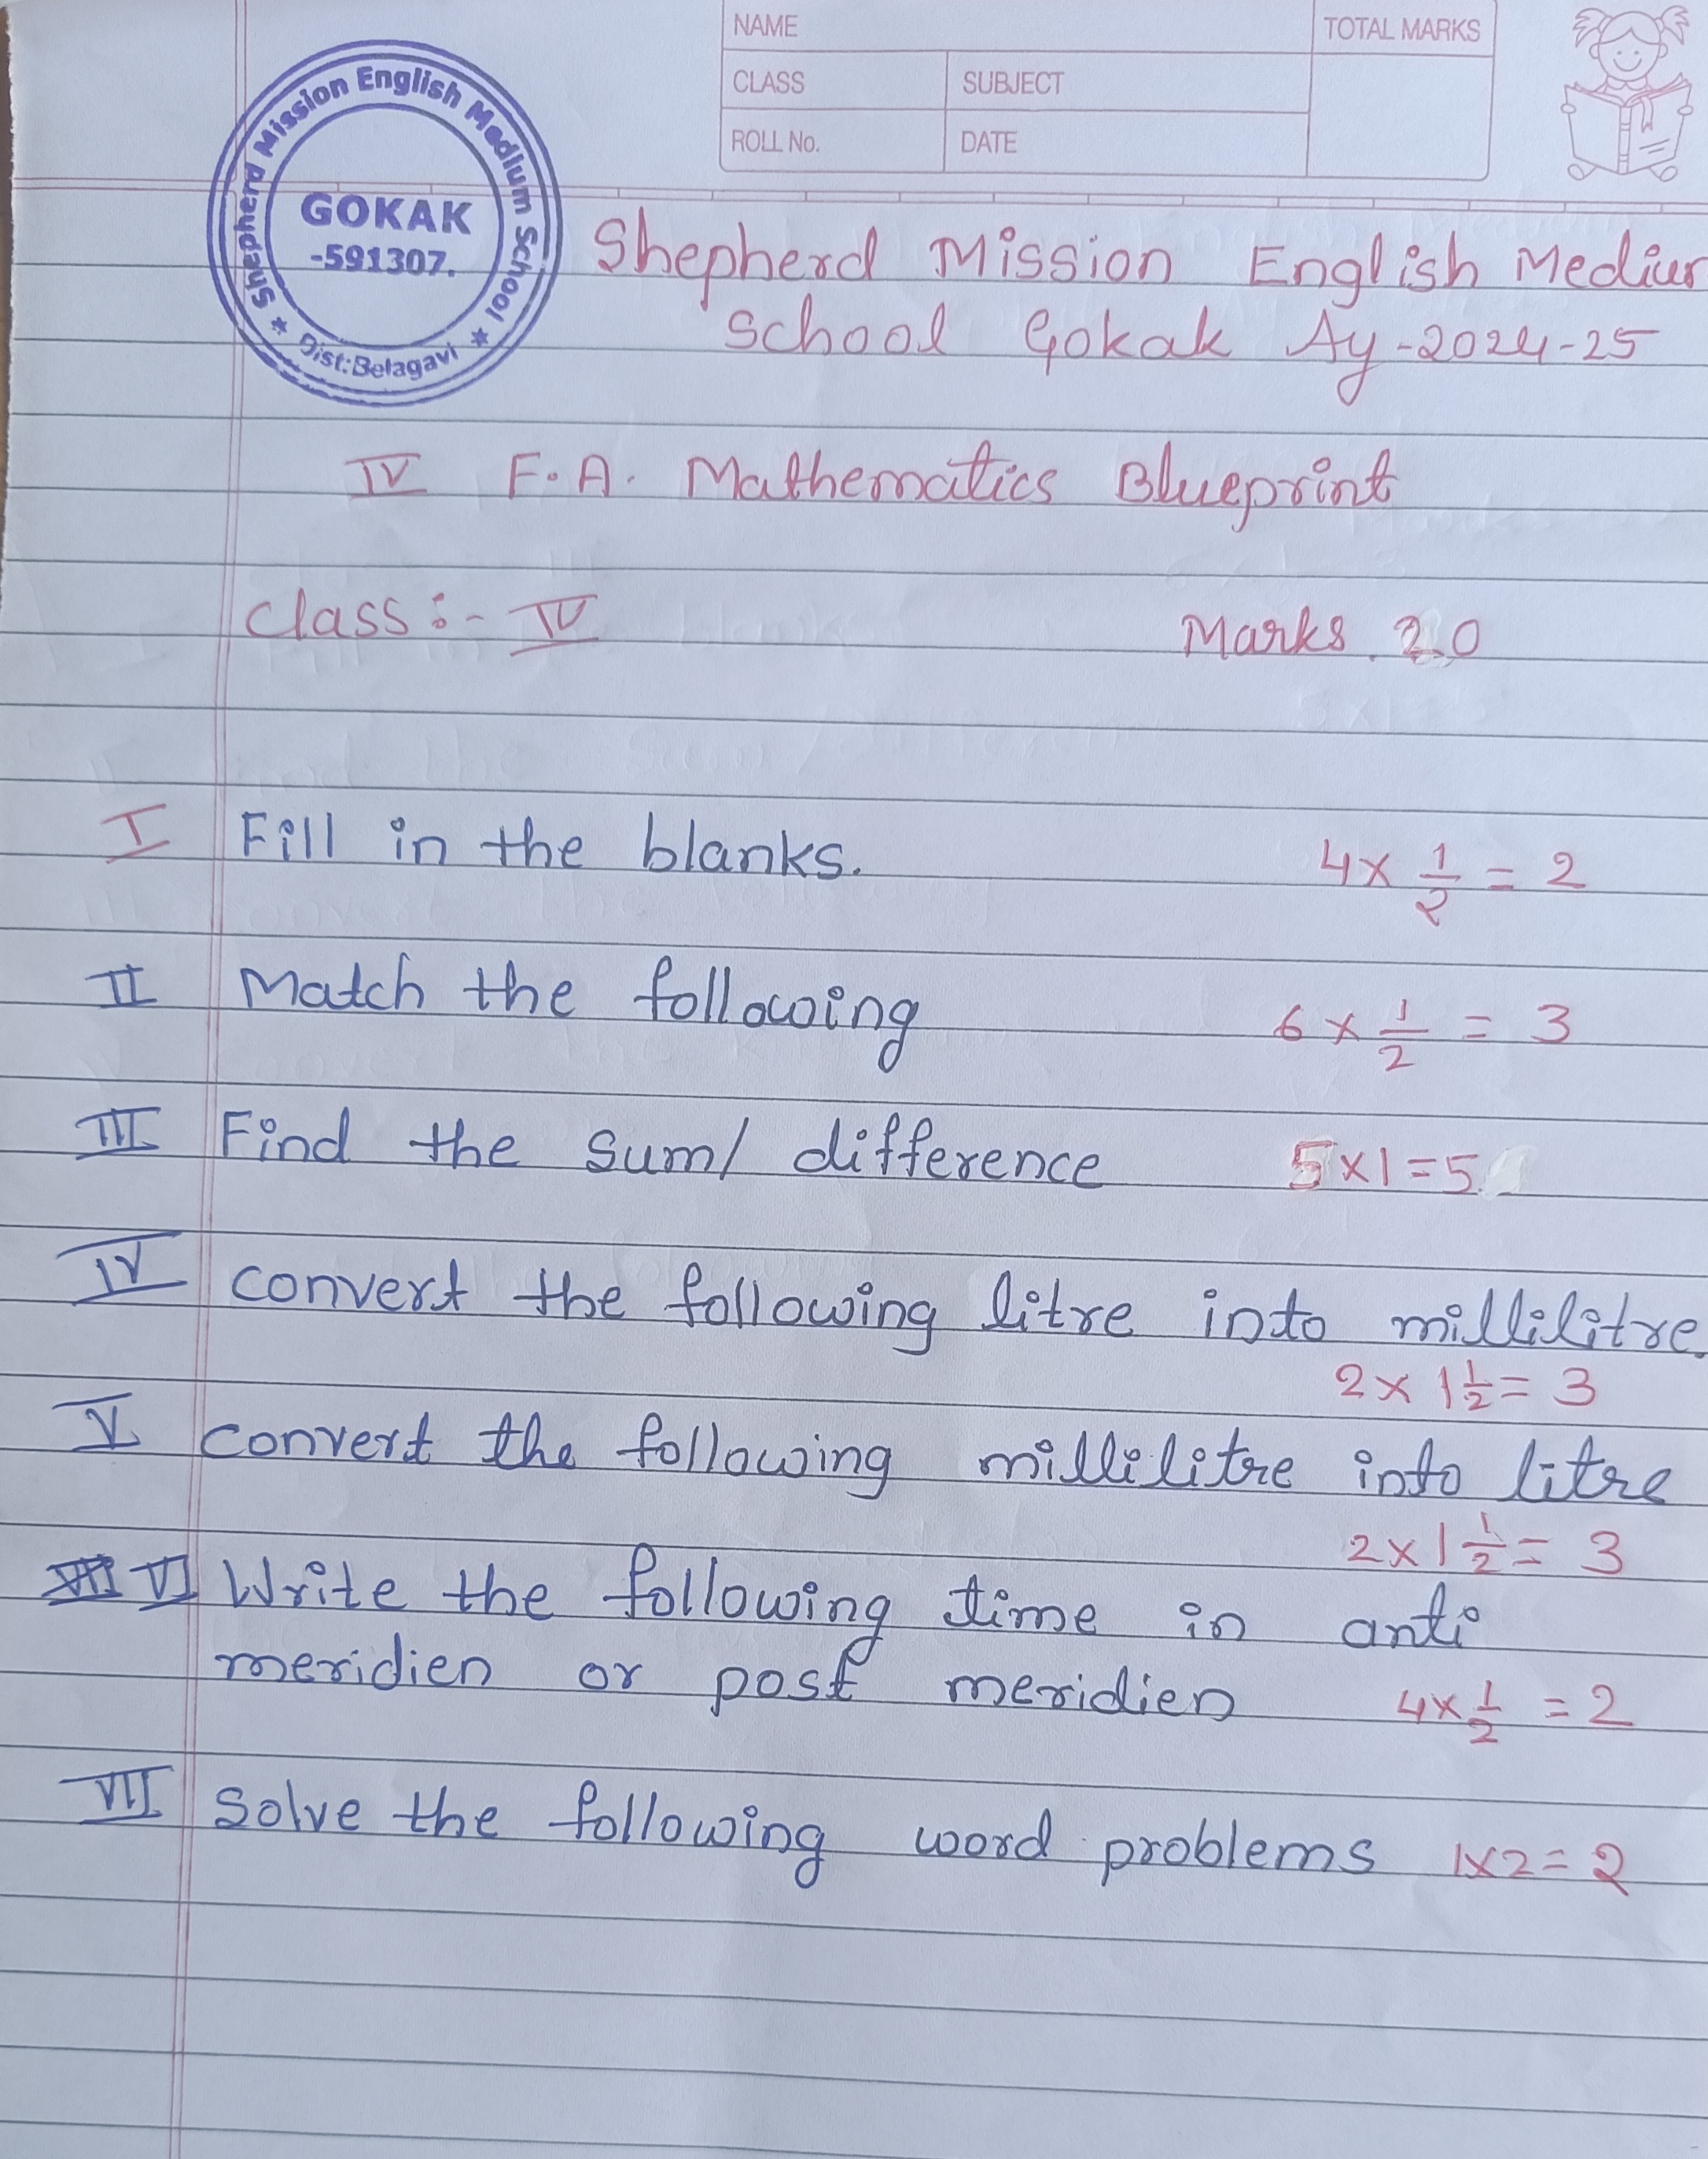 NAME
TOTAL MARKS
CLASS
SUBJECT
ROLL No.
DATE
Shepherd Mission English Medium School
GOKAK
-591307.
★ Dist:Belagavi ★
Shepherd Mission English Mediu
School Gokak Ay-2024-25
IV F.A. Mathematics Blueprint
Class:- IV Marks. 20
I Fill in the blanks. 4 x 1/2 = 2
II Match the following 6 x 1/2 = 3
III Find the sum/ difference 5x1=5
IV convert the following litre into millilitre.
2 x 1 1/2 = 3
V convert the following millilitre into litre
2 x 1 1/2 = 3
VI Write the following time in anti
meridien or post meridien 4x 1/2 = 2
VII Solve the following word problems 1x2=2